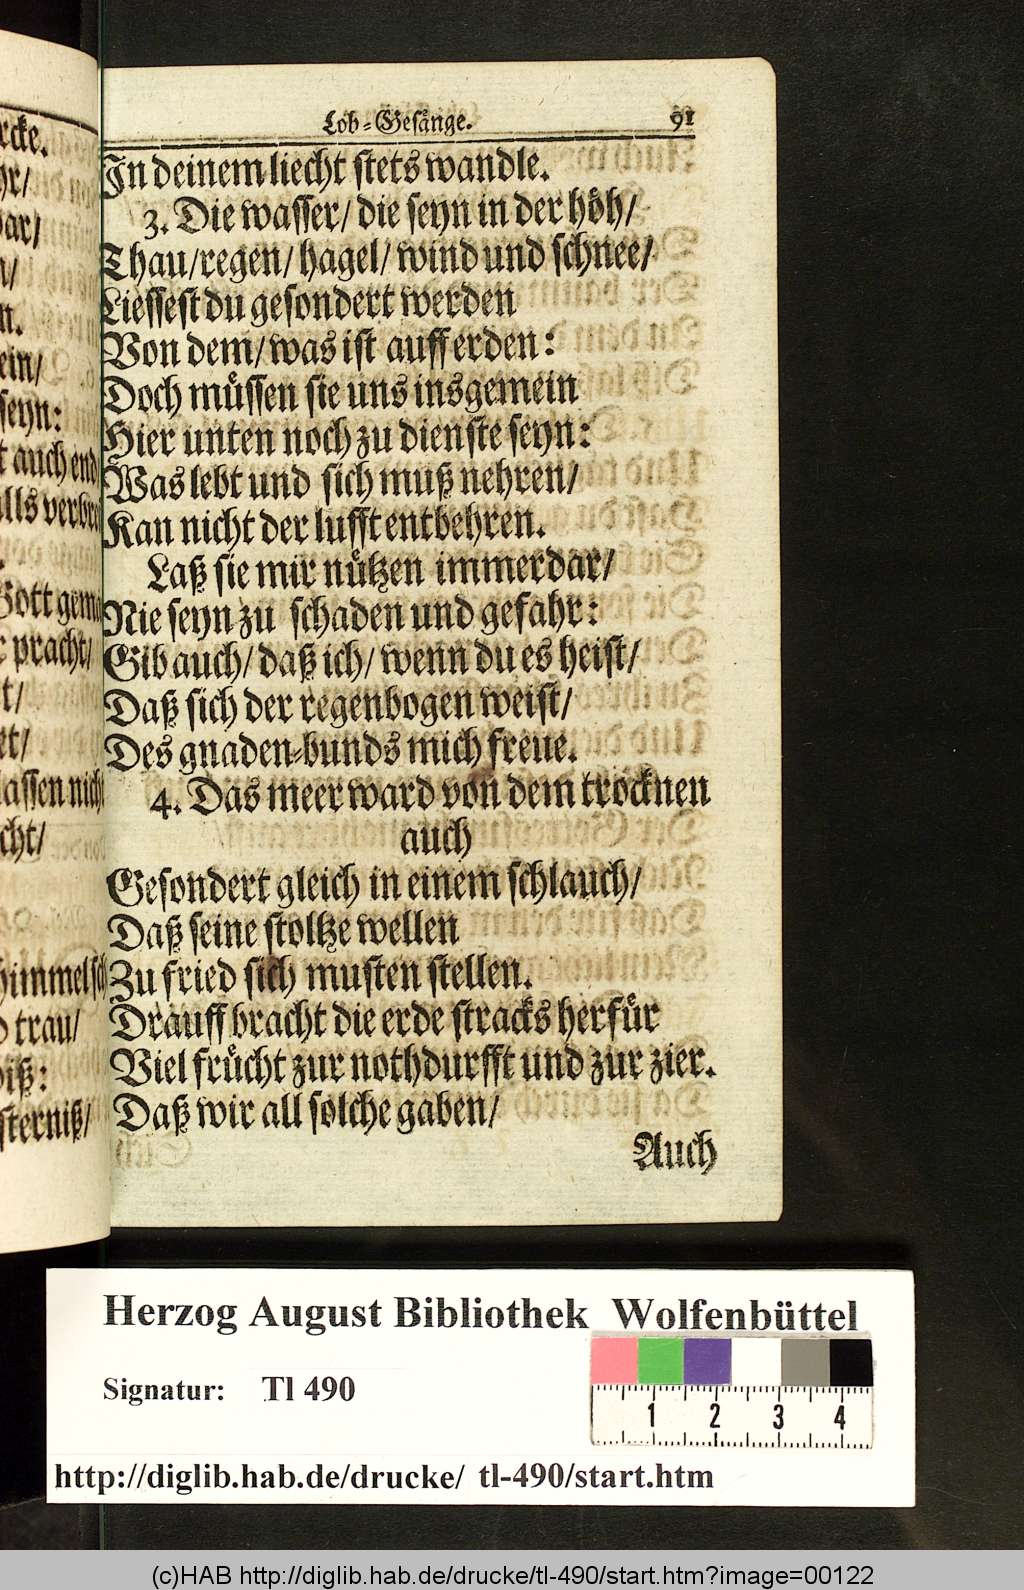 Lob-Gesänge. 91
In deinem liecht stets wandle.
3. Die wasser/ die seyn in der höh/
Thau/regen/ hagel/ wind und schnee/
Liessest du gesondert werden
Von dem/ was ist auff erden:
Doch müssen sie uns insgemein
Hier unten noch zu dienste seyn:
Was lebt und sich muß nehren/
Kan nicht der lufft entbehren.
Laß sie mir nützen immerdar/
Nie seyn zu schaden und gefahr:
Gib auch/ daß ich/ wenn du es heist/
Daß sich der regenbogen weist/
Des gnaden-bunds mich freue.
4. Das meer ward von dem trocknen
auch
Gesondert gleich in einem schlauch/
Daß seine stoltze wellen
Zu fried sich musten stellen.
Drauff bracht die erde stracks herfür
Viel frücht zur nothdurfft und zur zier.
Daß wir all solche gaben/
Auch
Herzog August Bibliothek Wolfenbüttel
Signatur: Tl 490
1 2 3 4
http://diglib.hab.de/drucke/ tl-490/start.htm
(c)HAB http://diglib.hab.de/drucke/tl-490/start.htm?image=00122